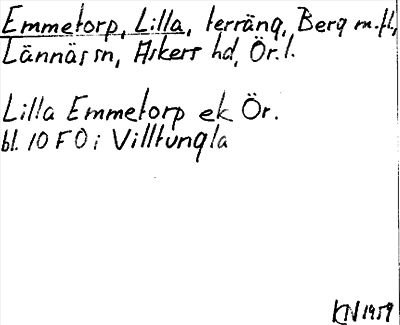 Emmetorp, Lilla, terräng, Berg m.fl,
Lännäs sn, Askers hd, Ör. l.
Lilla Emmetorp ek Ör.
bl. 10 F 0 i Villtungla
KN 1959